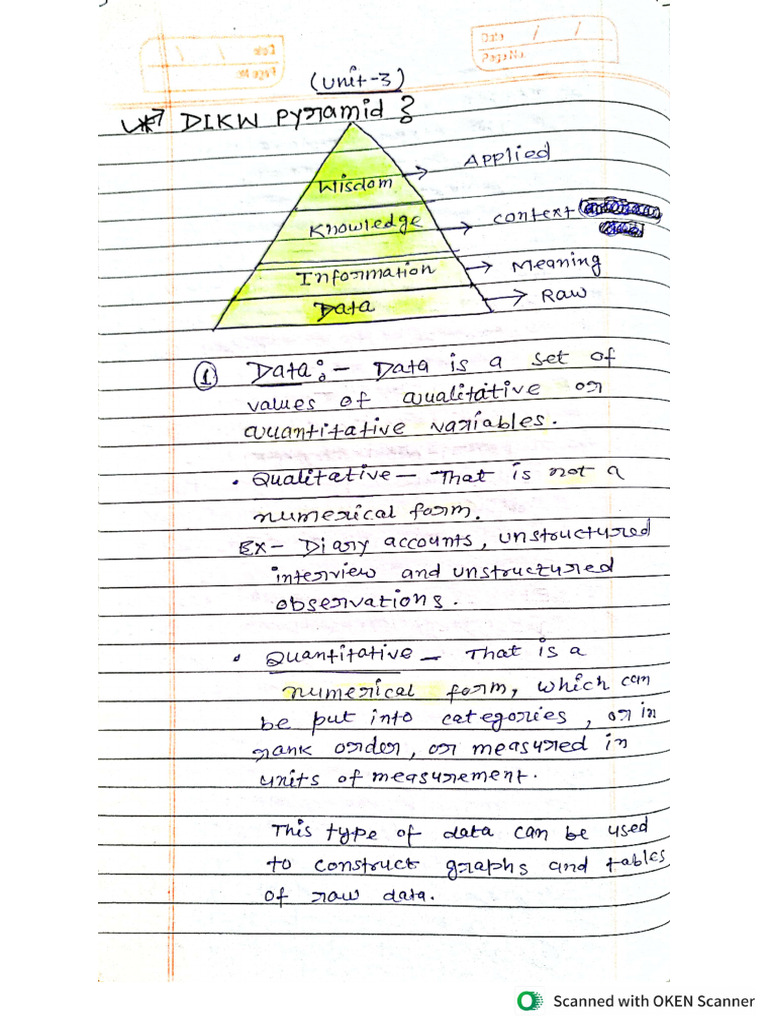 Date / /
Page No.
(Unit-3)
DIKW Pyramid
Wisdom → Applied
Knowledge → context
Information → Meaning
Data → Raw
① Data:- Data is a set of
values of qualitative or
quantitative variables.
• Qualitative – That is not a
numerical form.
Ex- Diary accounts, unstructured
interview and unstructured
observations.
• Quantitative – That is a
numerical form, which can
be put into categories, or in
rank order, or measured in
units of measurement.
This type of data can be used
to construct graphs and tables
of raw data.
Scanned with OKEN Scanner